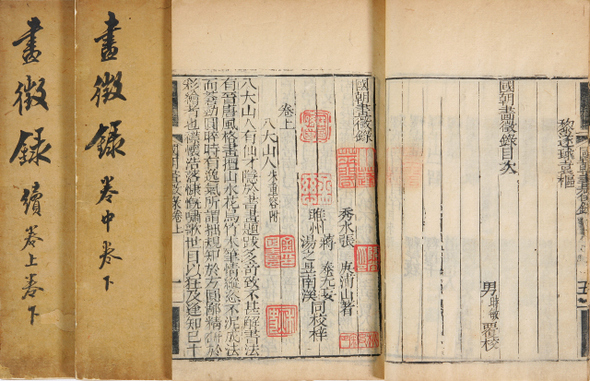 畫徵録
續卷上卷下
畫徵録
卷中卷下
黎遂球袁樞
國朝畫徵錄目次
男
覆校
國朝畫徵錄
卷上
秀水張庚浦山著
睢州
蔣泰无妄
湯之昱南溪
同校梓
八大山人
朱重容附
八大山人有仙才隱於書畫題跋多奇致不甚解書法
有晉唐風格畫擅山水花鳥竹木筆情縱恣不泥成法
而蒼勁圓晬時有逸氣所謂拙規矩於方圓鄙精研於
彩繪者也襟懷浩落慷慨嘯歌世目以狂及逢知己十